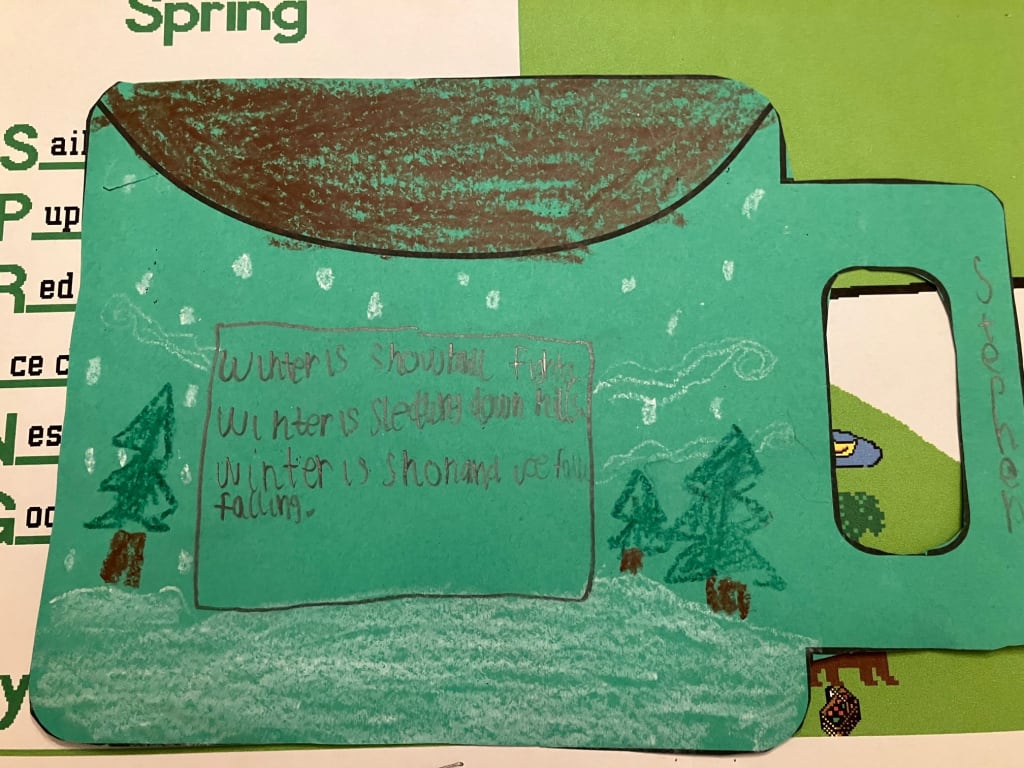 Spring
S ail
P up
R ed
ce c
N es
G oo
y
Winter is Snowball Fights
Winter is Sledding down hills.
Winter is Snonand ice falli
falling.
Stephen